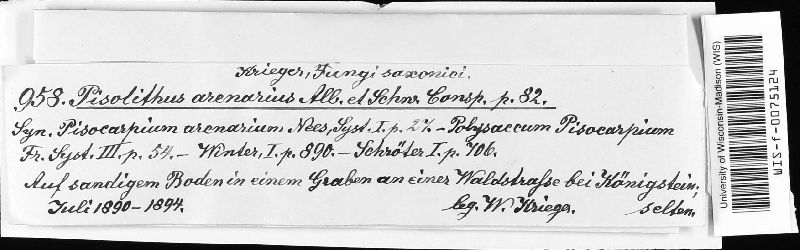 Krieger, Fungi saxonici.
958. Pisolithus arenarius Alb. et Schw. Consp. p. 82.
Syn. Pisocarpium arenarium Nees, Syst. I. p. 27. – Polysaccum Pisocarpium
Fr. Syst. III. p. 54. – Winter, I. p. 890. – Schröter I. p. 706.
Auf sandigem Boden in einem Graben an einer Waldstrasse bei Königstein;
Juli 1890-1894. leg. W. Krieger. selten.
University of Wisconsin-Madison (WIS)
WIS-f-0075124